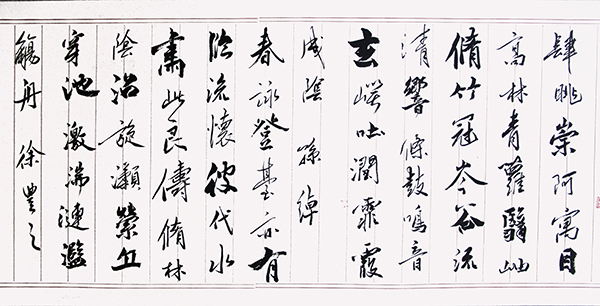 肆眺崇阿寓目
高林青蘿翳岫
脩竹冠岑谷流
清響條鼓鳴音
玄崿吐潤霏霞
成陰 孫綽
春詠登臺亦有
臨流懷彼代水
肅此良儔脩林
陰沼旋瀨縈丘
穿池激湍漣濫
觴舟 徐豐之